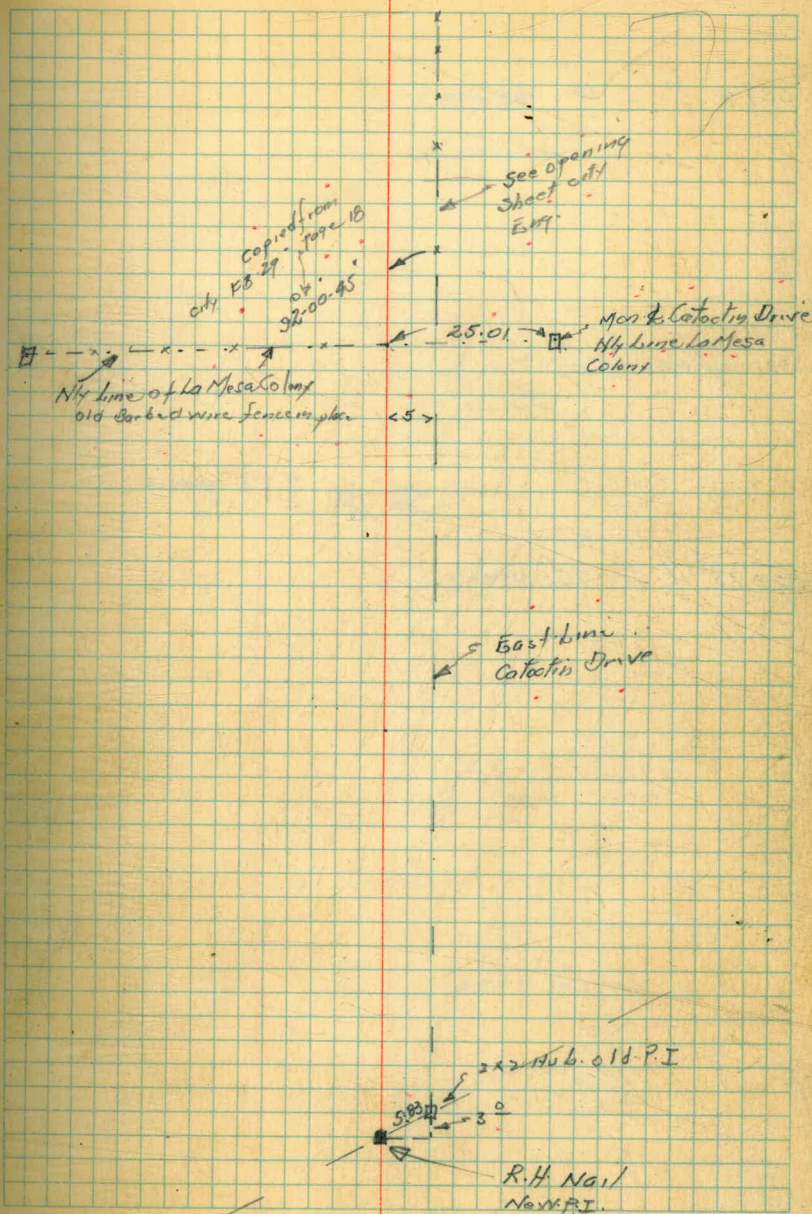 See opening
Sheet city
Eng.
Copied from
city F.B. 29 - Page 18
ok
92-00-45
25.01
Mon ℄ Catoctin Drive
Nly Line La Mesa
Colony
Nly Line of La Mesa Colony
old Barbed wire fence in place
<5>
East Line
Catoctin Drive
2x2 Hub. old P.I
5.83
3º
R.H. Nail
New P.I.